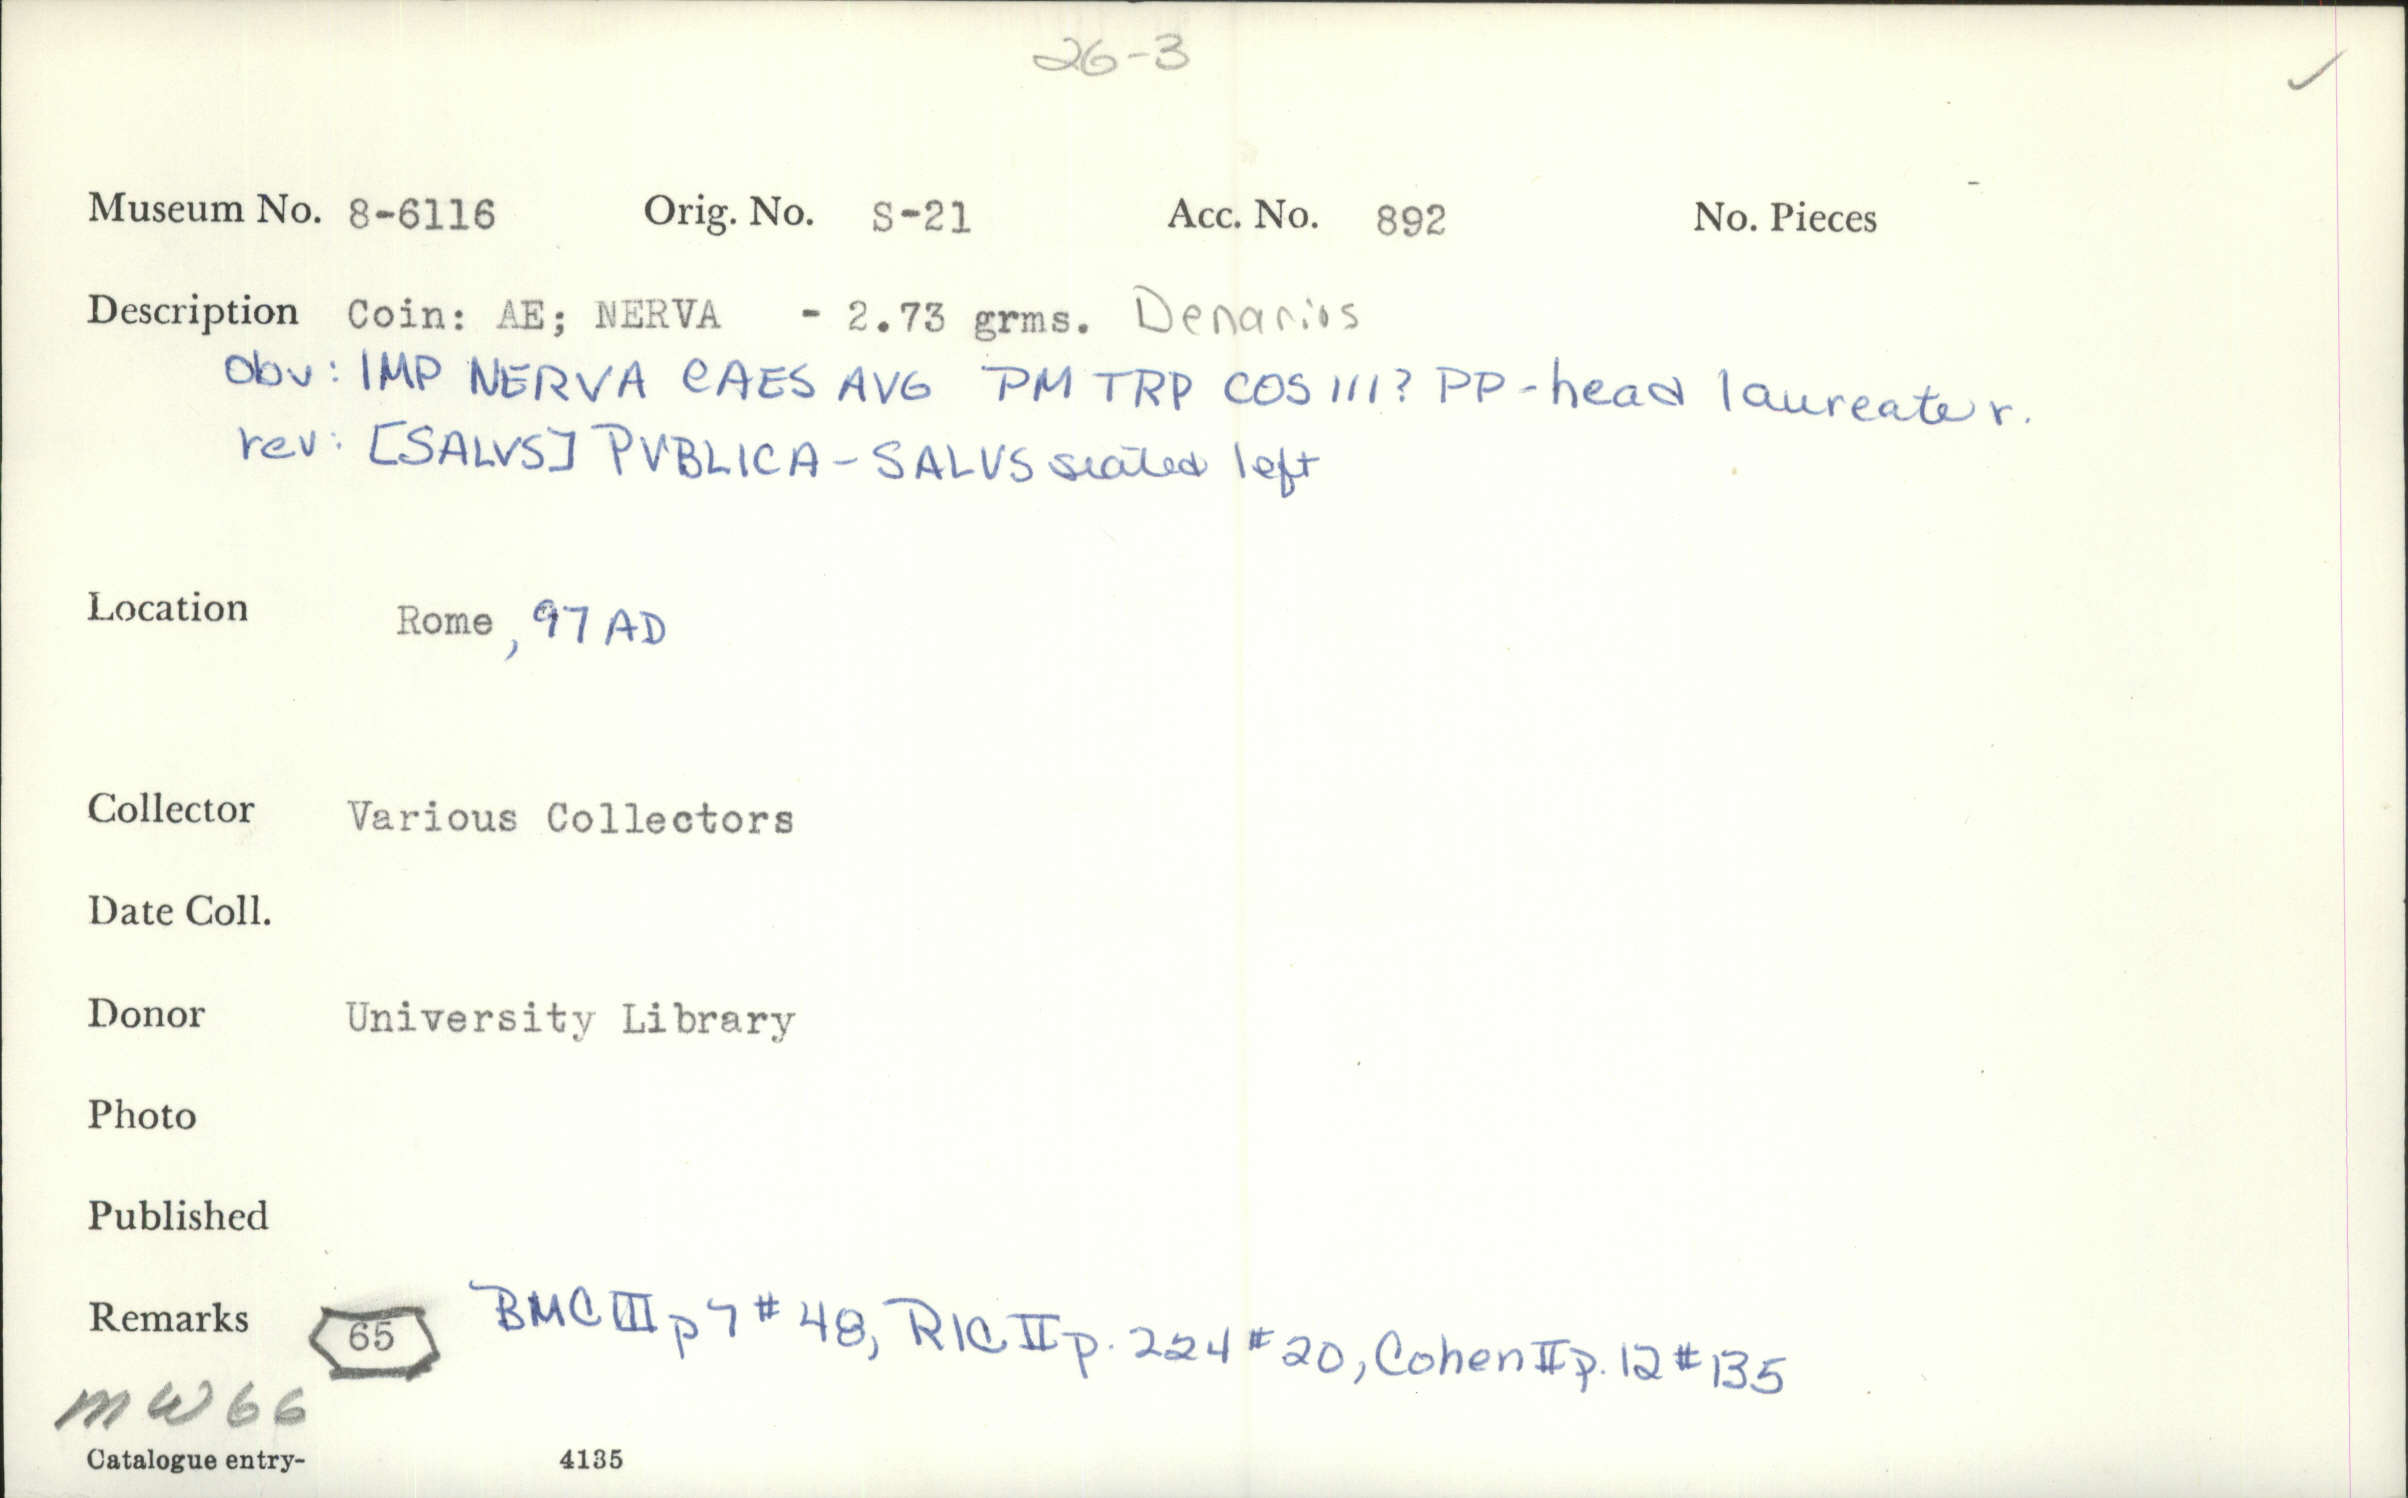 26-3 ✓
Museum No. 8-6116 Orig. No. S-21 Acc. No. 892 No. Pieces
Description Coin: AE; NERVA - 2.73 grms. Denarius
Obv: IMP NERVA CAES AVG PM TRP COS III? PP - head laureate r.
rev: [SALVS] PVBLICA - SALUS seated left
Location Rome, 97 AD
Collector Various Collectors
Date Coll.
Donor University Library
Photo
Published
Remarks 65 BMC III p 7 # 48, RIC II p. 224 # 20, Cohen II p. 12 # 135
MW66
Catalogue entry- 4135